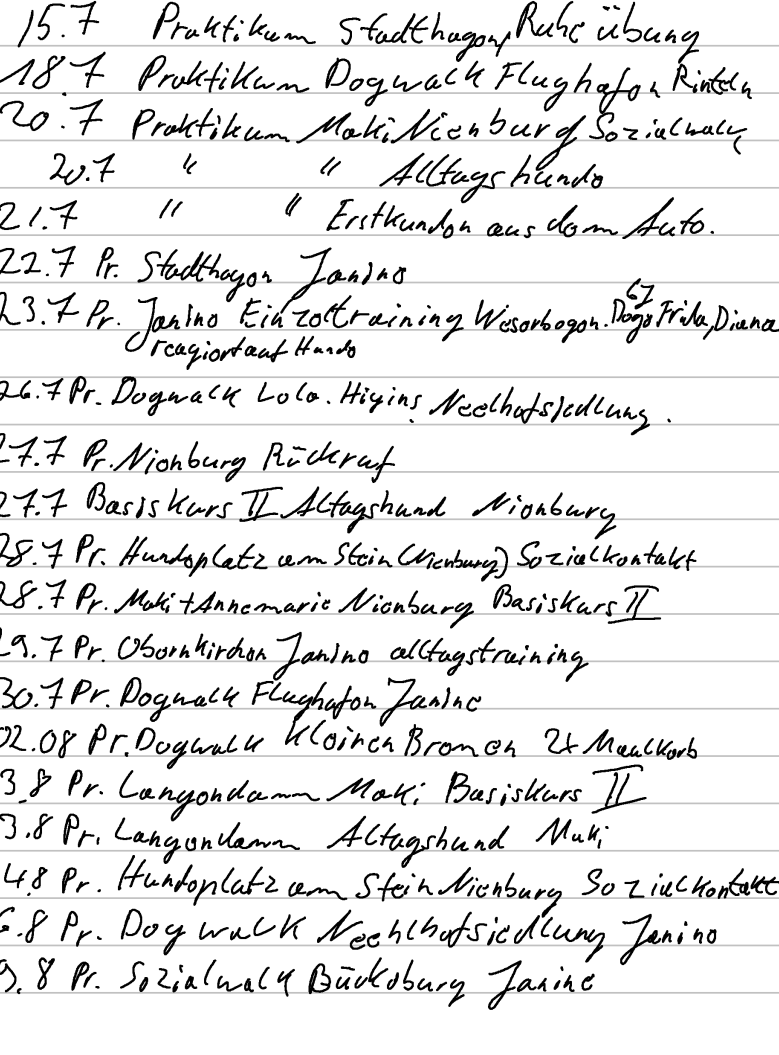 15.7 Praktikum Stadthagen, Ruhe übung
18.7 Praktikum Dogwalk Flughafen Rinteln
20.7 Praktikum Maki Nienburg Sozialwalk
20.7 " " Alltagshunde
21.7 " " Erstkunden aus dem Auto.
22.7 Pr. Stadthagen Janine
23.7 Pr. Janine Einzeltraining Weserbogen. Doge Frida, Diana
reagiert auf Hunde
26.7 Pr. Dogwalk Lola. Higins Neelhofsiedlung.
27.7 Pr. Nienburg Rückruf
27.7 Basiskurs II Altagshund Nienburg
28.7 Pr. Hundeplatz am Stein (Nienburg) Sozialkontakt
28.7 Pr. Maki + Annemarie Nienburg Basiskurs II
29.7 Pr. Obernkirchen Janine alltagstraining
30.7 Pr. Dogwalk Flughafen Janine
02.08 Pr. Dogwalk Kleinen Bremen 2x Maulkorb
3.8 Pr. Langendamm Maki Basiskurs II
3.8 Pr. Langendamm Altagshund Maki
4.8 Pr. Hundeplatz am Stein Nienburg Sozialkontakt
6.8 Pr. Dogwalk Neehlhofsiedlung Janine
9.8 Pr. Sozialwalk Bückeburg Janine